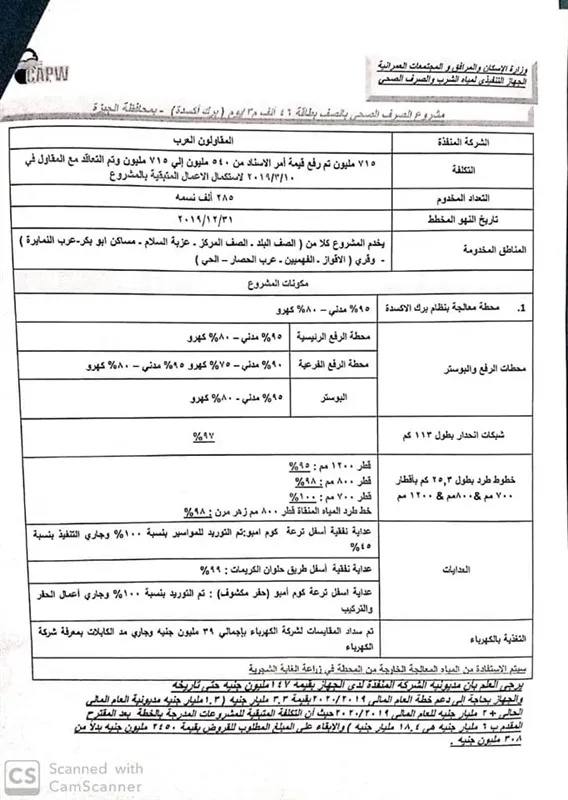 CAPW
وزارة الاسكان والمرافق و المجتمعات العمرانية
الجهاز التنفيذي لمياه الشرب والصرف الصحي
مشروع الصرف الصحي بالصف بطاقة ٤٦ الف م٣/يوم ( برك أكسدة ) - بمحافظة الجيزة
الشركة المنفذة
المقاولون العرب
التكلفة
٧١٥ مليون تم رفع قيمة أمر الاسناد من ٥٤٠ مليون إلي ٧١٥ مليون وتم التعاقد مع المقاول في
٢٠١٩/٣/١٠ لاستكمال الاعمال المتبقية بالمشروع
التعداد المخدوم
٢٨٥ ألف نسمه
تاريخ النهو المخطط
٢٠١٩/١٢/٣١
المناطق المخدومة
يخدم المشروع كلا من ( الصف البلد ـ الصف المركز ـ عزبة السلام ـ مساكن ابو بكر-عرب النمايرة )
- وقري ( الاقواز ـ الفهميين ـ عرب الحصار – الحي )
مكونات المشروع
1. محطة معالجة بنظام برك الاكسدة
٩٥% مدني – ٨٠% كهرو
محطات الرفع والبوستر
محطة الرفع الرئيسية
٩٥% مدني - ٨٠% كهرو
محطة الرفع الفرعية
٩٠% مدني – ٧٥% كهرو ٩٥% مدني – ٨٠% كهرو
البوستر
٩٥% مدني - ٨٠% كهرو
شبكات انحدار بطول ١١٣ كم
٩٧%
خطوط طرد بطول ٢٥,٣ كم بأقطار
٧٠٠ مم &٨٠٠مم & ١٢٠٠ مم
قطر ١٢٠٠ مم : ٩٥%
قطر ٨٠٠ مم : ٩٨%
قطر ٧٠٠ مم : ١٠٠%
خط طرد المياه المنقاة قطر ٨٠٠ مم زهر مرن : ٩٨%
العدايات
عداية نفقية أسفل ترعة كوم امبو:تم التوريد للمواسير بنسبة ١٠٠% وجاري التنفيذ بنسبة
٤٥%
عداية نفقية أسفل طريق حلوان الكريمات : ٩٩%
عداية اسفل ترعة كوم أمبو (حفر مكشوف) : تم التوريد بنسبة ١٠٠% وجاري أعمال الحفر
والتركيب
التغذية بالكهرباء
تم سداد المقايسات لشركة الكهرباء بإجمالي ٣٩ مليون جنيه وجاري مد الكابلات بمعرفة شركة
الكهرباء
سيتم الاستفادة من المياه المعالجة الخارجة من المحطة في زراعة الغابة الشجرية
يرجى العلم بأن مديونية الشركة المنفذة لدي الجهاز بقيمه ١٤٧مليون جنيه حتى تاريخه
والجهاز بحاجة الى دعم خطة العام المالى ٢٠٢٠/٢٠١٩ بقيمة ٣.٣ مليار جنيه ( ١.٣مليار جنيه مديونية العام المالى
الحالى + ٢ مليار جنيه للعام المالى ٢٠٢٠/٢٠١٩ حيث أن التكلفة المتبقية للمشروعات المدرجة بالخطة بعد المقترح
المقدم ب ٦ مليار جنيه هى ١٨,٤ مليار جنيه ) والابقاء على المبلغ المطلوب للقروض بقيمة ٢٤٥٠ مليون جنيه بدلا من
٣٠٨ مليون جنيه .
CS Scanned with
CamScanner